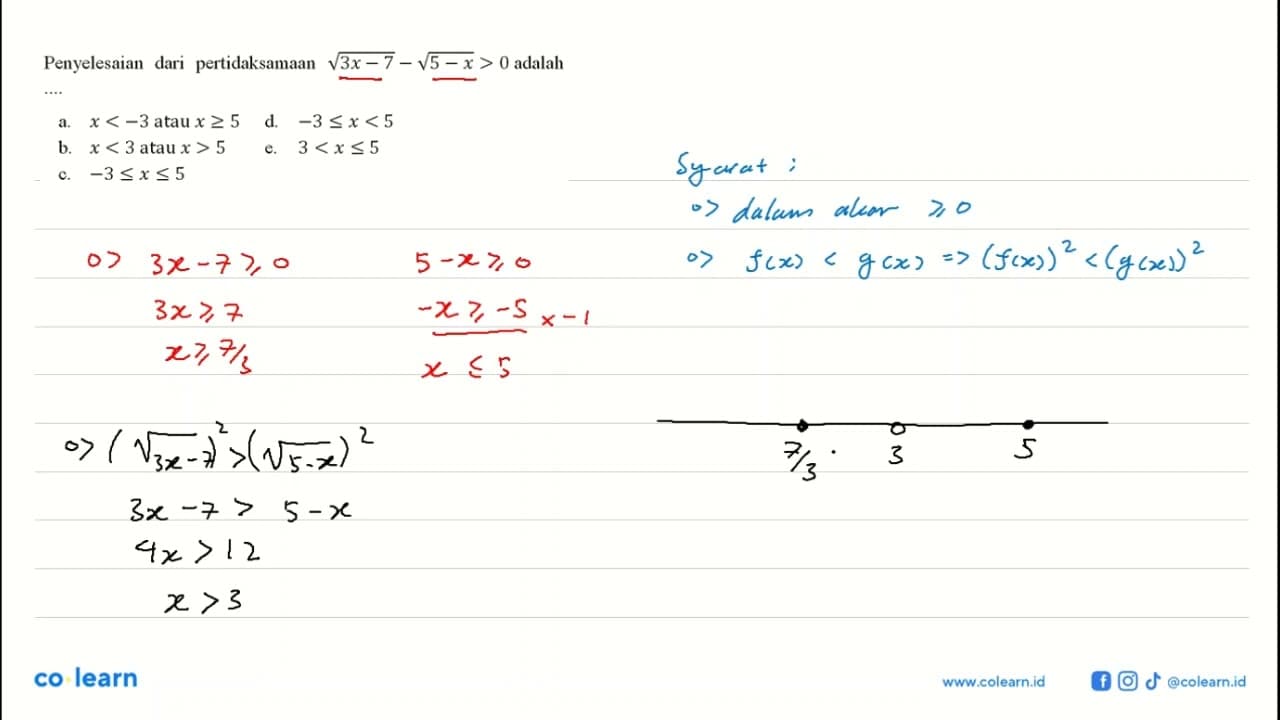 Penyelesaian dari pertidaksamaan √3x − 7 − √5 − x > 0 adalah
....
a. x < −3 atau x ≥ 5 d. −3 ≤ x < 5
b. x < 3 atau x > 5 e. 3 < x ≤ 5
c. −3 ≤ x ≤ 5
Syarat :
=> dalam akar ≥ 0
=> f(x) < g(x) => (f(x))² < (g(x))²
=> 3x − 7 ≥ 0 5 − x ≥ 0
3x ≥ 7 −x ≥ −5 x −1
x ≥ 7/3 x ≤ 5
=> (√3x − 7)² > (√5 − x)²
3x − 7 > 5 − x
4x > 12
x > 3
7/3 . 3 5
co learn
www.colearn.id @colearn.id